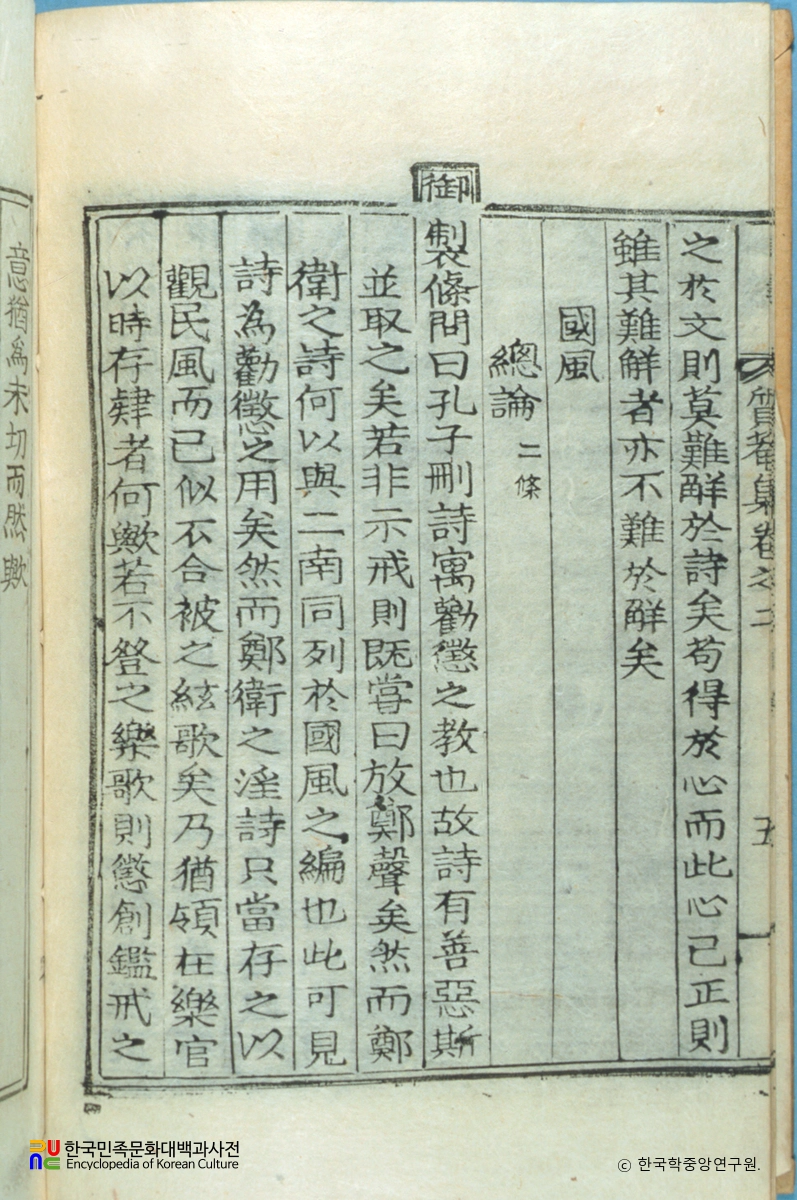 質菴集卷之二
五
之於文則莫難解於詩矣苟得於心而此心已正則
雖其難解者亦不難於解矣
國風
總論 二條
御製條問曰孔子刪詩寓勸懲之教也故詩有善惡斯
並取之矣若非示戒則既嘗曰放鄭聲矣然而鄭
衛之詩何以與二南同列於國風之編也此可見
詩為勸懲之用矣然而鄭衛之淫詩只當存之以
觀民風而已似不合被之絃歌矣乃猶領在樂官
以時存肄者何歟若不登之樂歌則懲創鑑戒之
意猶為未切而然歟
한국민족문화대백과사전
Encyclopedia of Korean Culture
© 한국학중앙연구원.